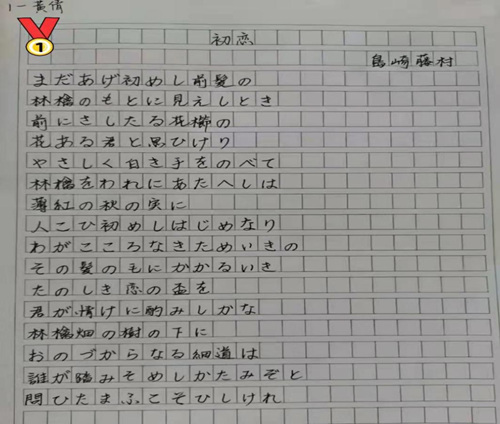 1-黄倩
1
初恋
島崎藤村
まだあげ初めし前髪の
林檎のもとに見えしとき
前にさしたる花櫛の
花ある君と思ひけり
やさしく白き手をのべて
林檎をわれにあたへしは
薄紅の秋の実に
人こひ初めしはじめなり
わがこころなきためいきの
その髪の毛にかかるいき
たのしき恋の盃を
君が情けに酌みしかな
林檎畑の樹の下に
おのづからなる細道は
誰が踏みそめしかたみぞと
問ひたまふこそひしけれ